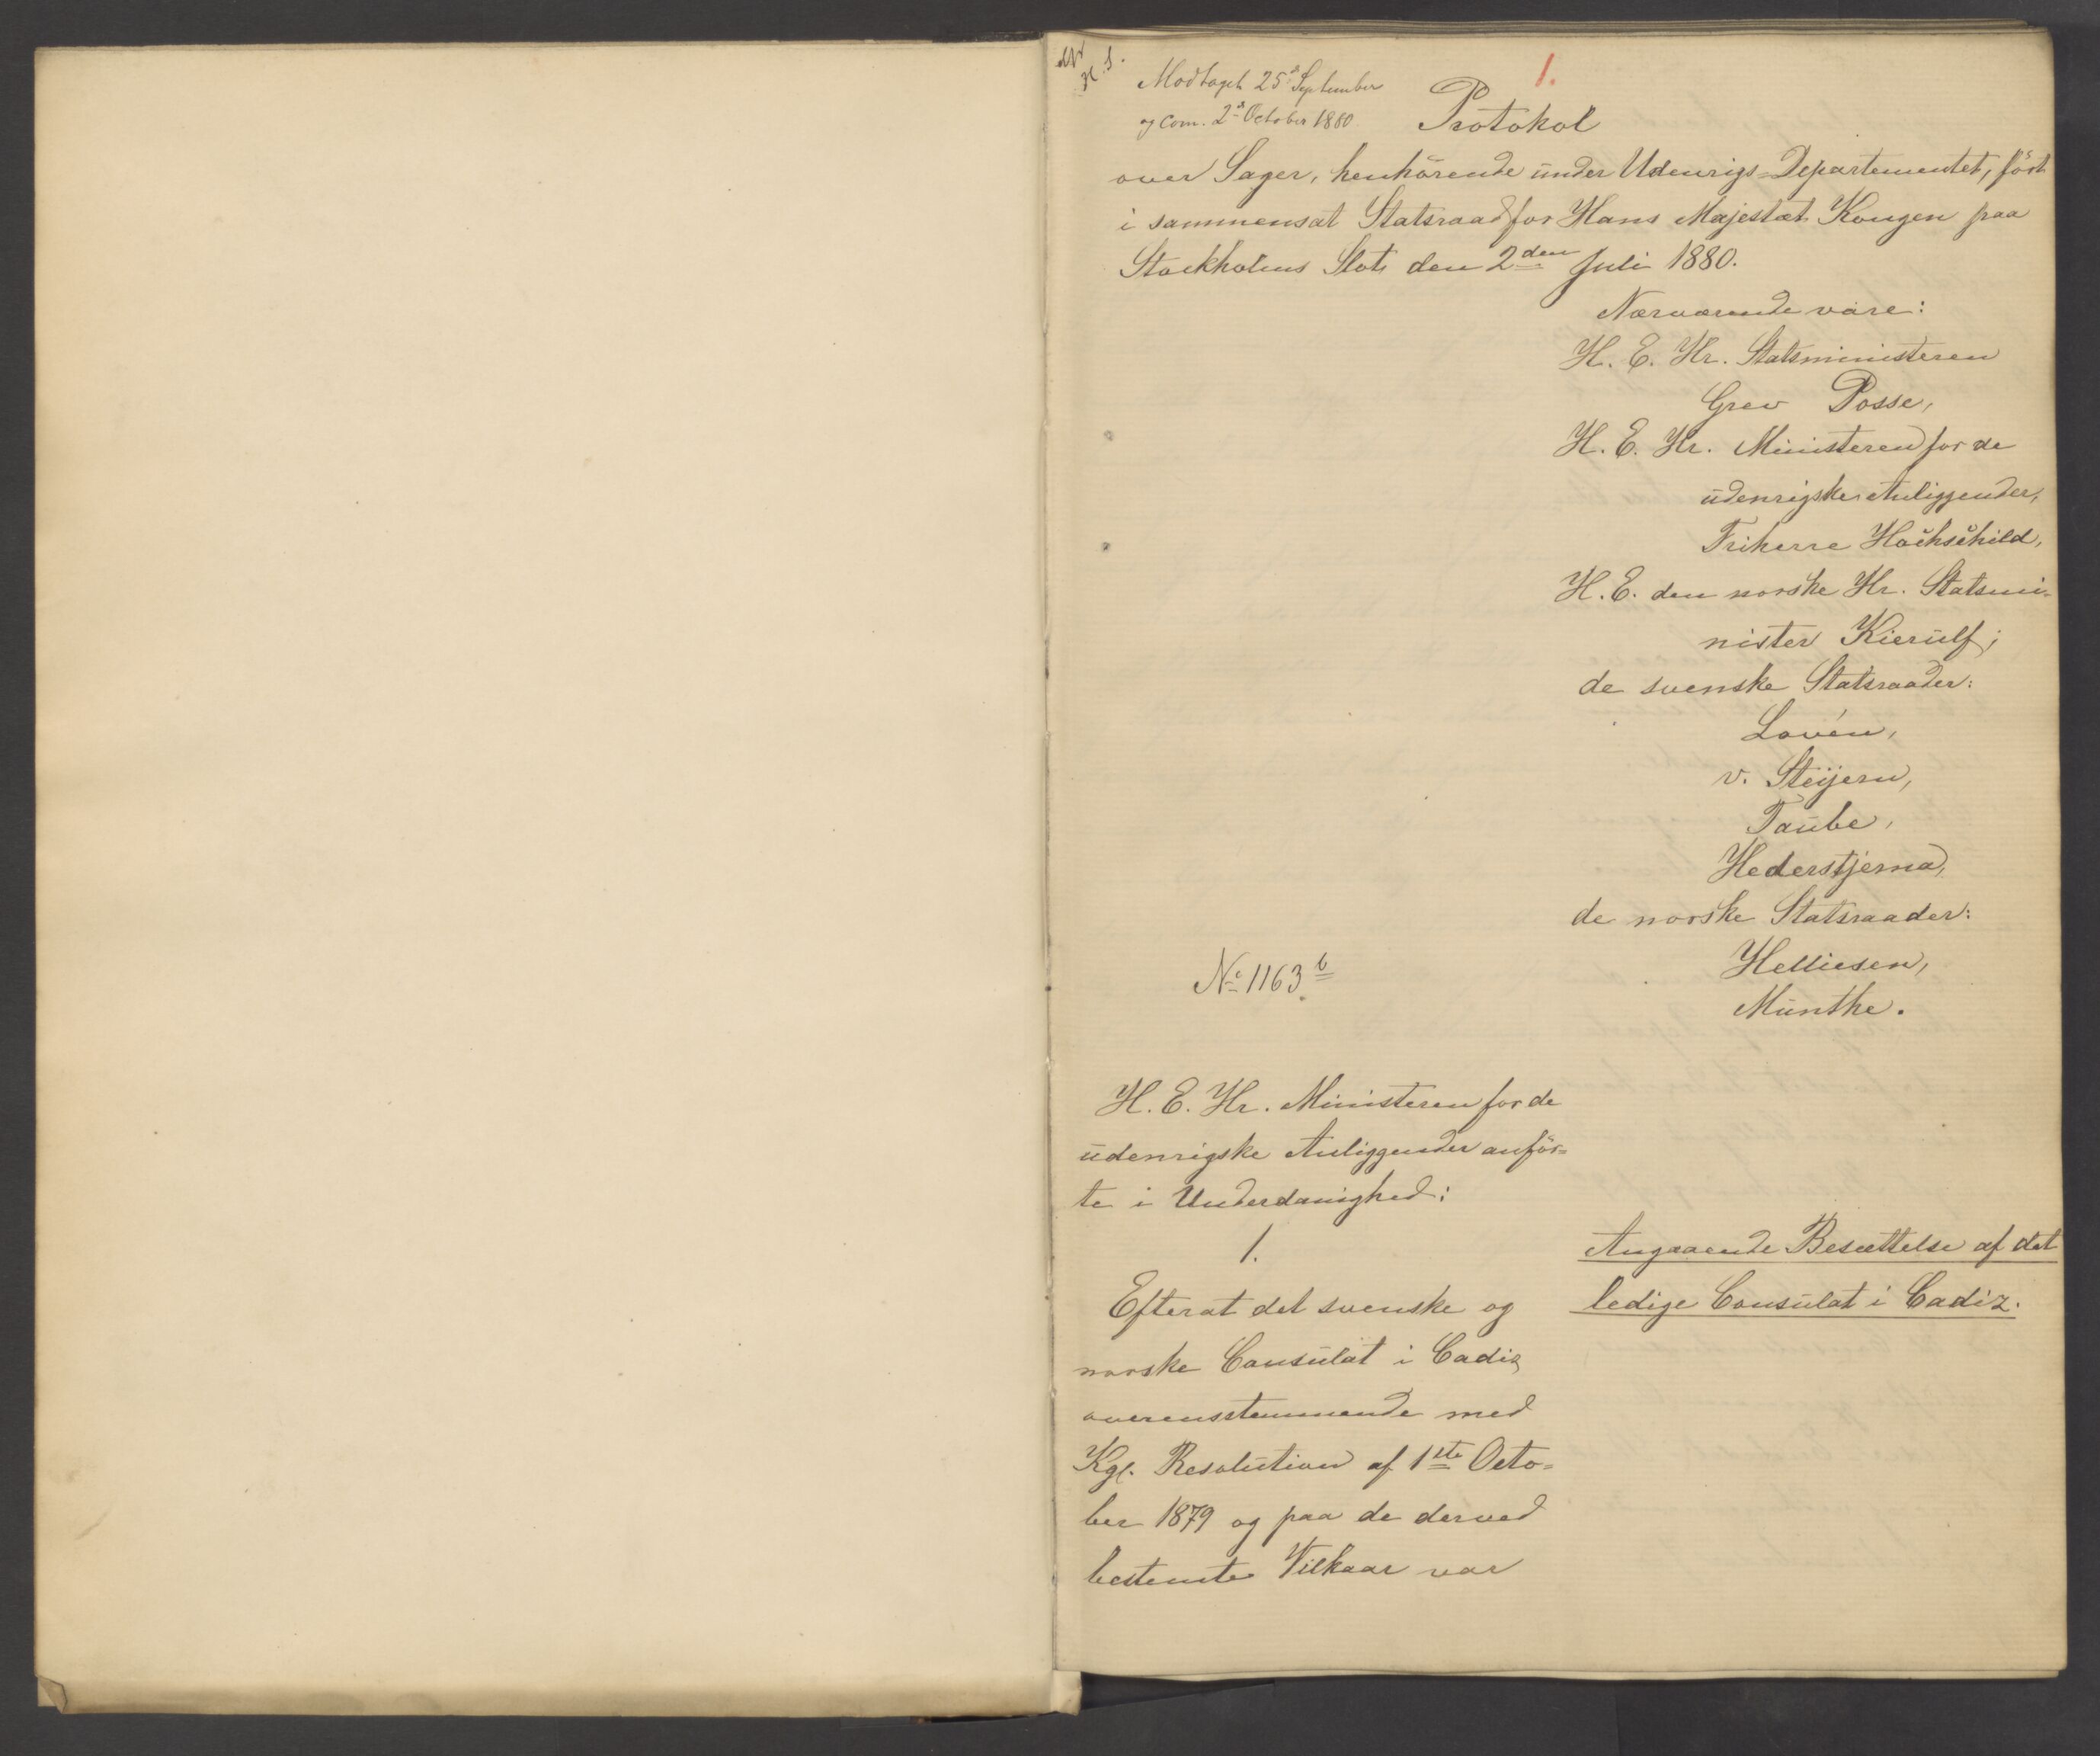 1.
Modtaget 25de September
og com. 2de October 1880.
Protokol
over Sager, henhörende under Udenrigs-Departementet, fört
i sammensat Statsraad for Hans Majestæt Kongen paa
Stockholms Slot den 2den Juli 1880.
Nærværende vare:
H. E. Hr. Statsministeren
Grev Posse,
H. E. Hr. Ministeren for de
udenrigske Anliggender,
Friherre Hochschild,
H. E. den norske Hr. Statsmi-
nister Kierulf;
de svenske Statsraader:
Lovén,
v. Steijern,
Taube,
Hederstjerna,
de norske Statsraader:
Helliesen,
Munthe.
No 1163 b
H. E. Hr. Ministeren for de
udenrigske Anliggender anför-
te i Underdanighed:
1.
Angaaende Besættelse af det
ledige Consulat i Cadiz.
Efterat det svenske og
norske Consulat i Cadiz
overensstemmende med
Kgl. Resolution af 1ste Octo-
ber 1879 og paa de derved
bestemte Vilkaar var